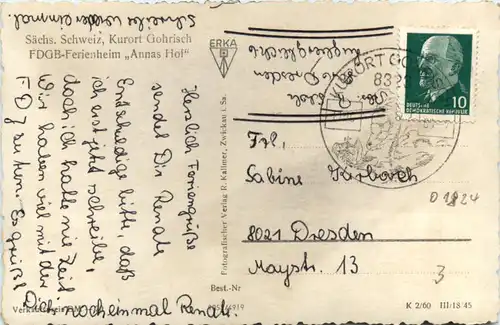 Schreibe wieder einmal.
Sächs. Schweiz, Kurort Gohrisch
FDGB-Ferienheim „Annas Hof"
Herzlich Feriengrüße
sendet Dir Renate
Entschuldige bitte, daß
ich erst jetzt schreibe,
doch ich hatte nie Zeit
Wir haben viel mit der
FDJ zu tun. Es grüßt
Dich noch einmal Renate.
ERKA
Fotografischer Verlag R. Kallmer, Zwickau i. Sa
KURORT GO
DEUTSCHE
DEMOKRATISCHE REPUBLIK
10
Frl.
Sabine
8021 Dresden
Maystr. 13
D 1824
3
Best.-Nr
K 2/60 III/18/45